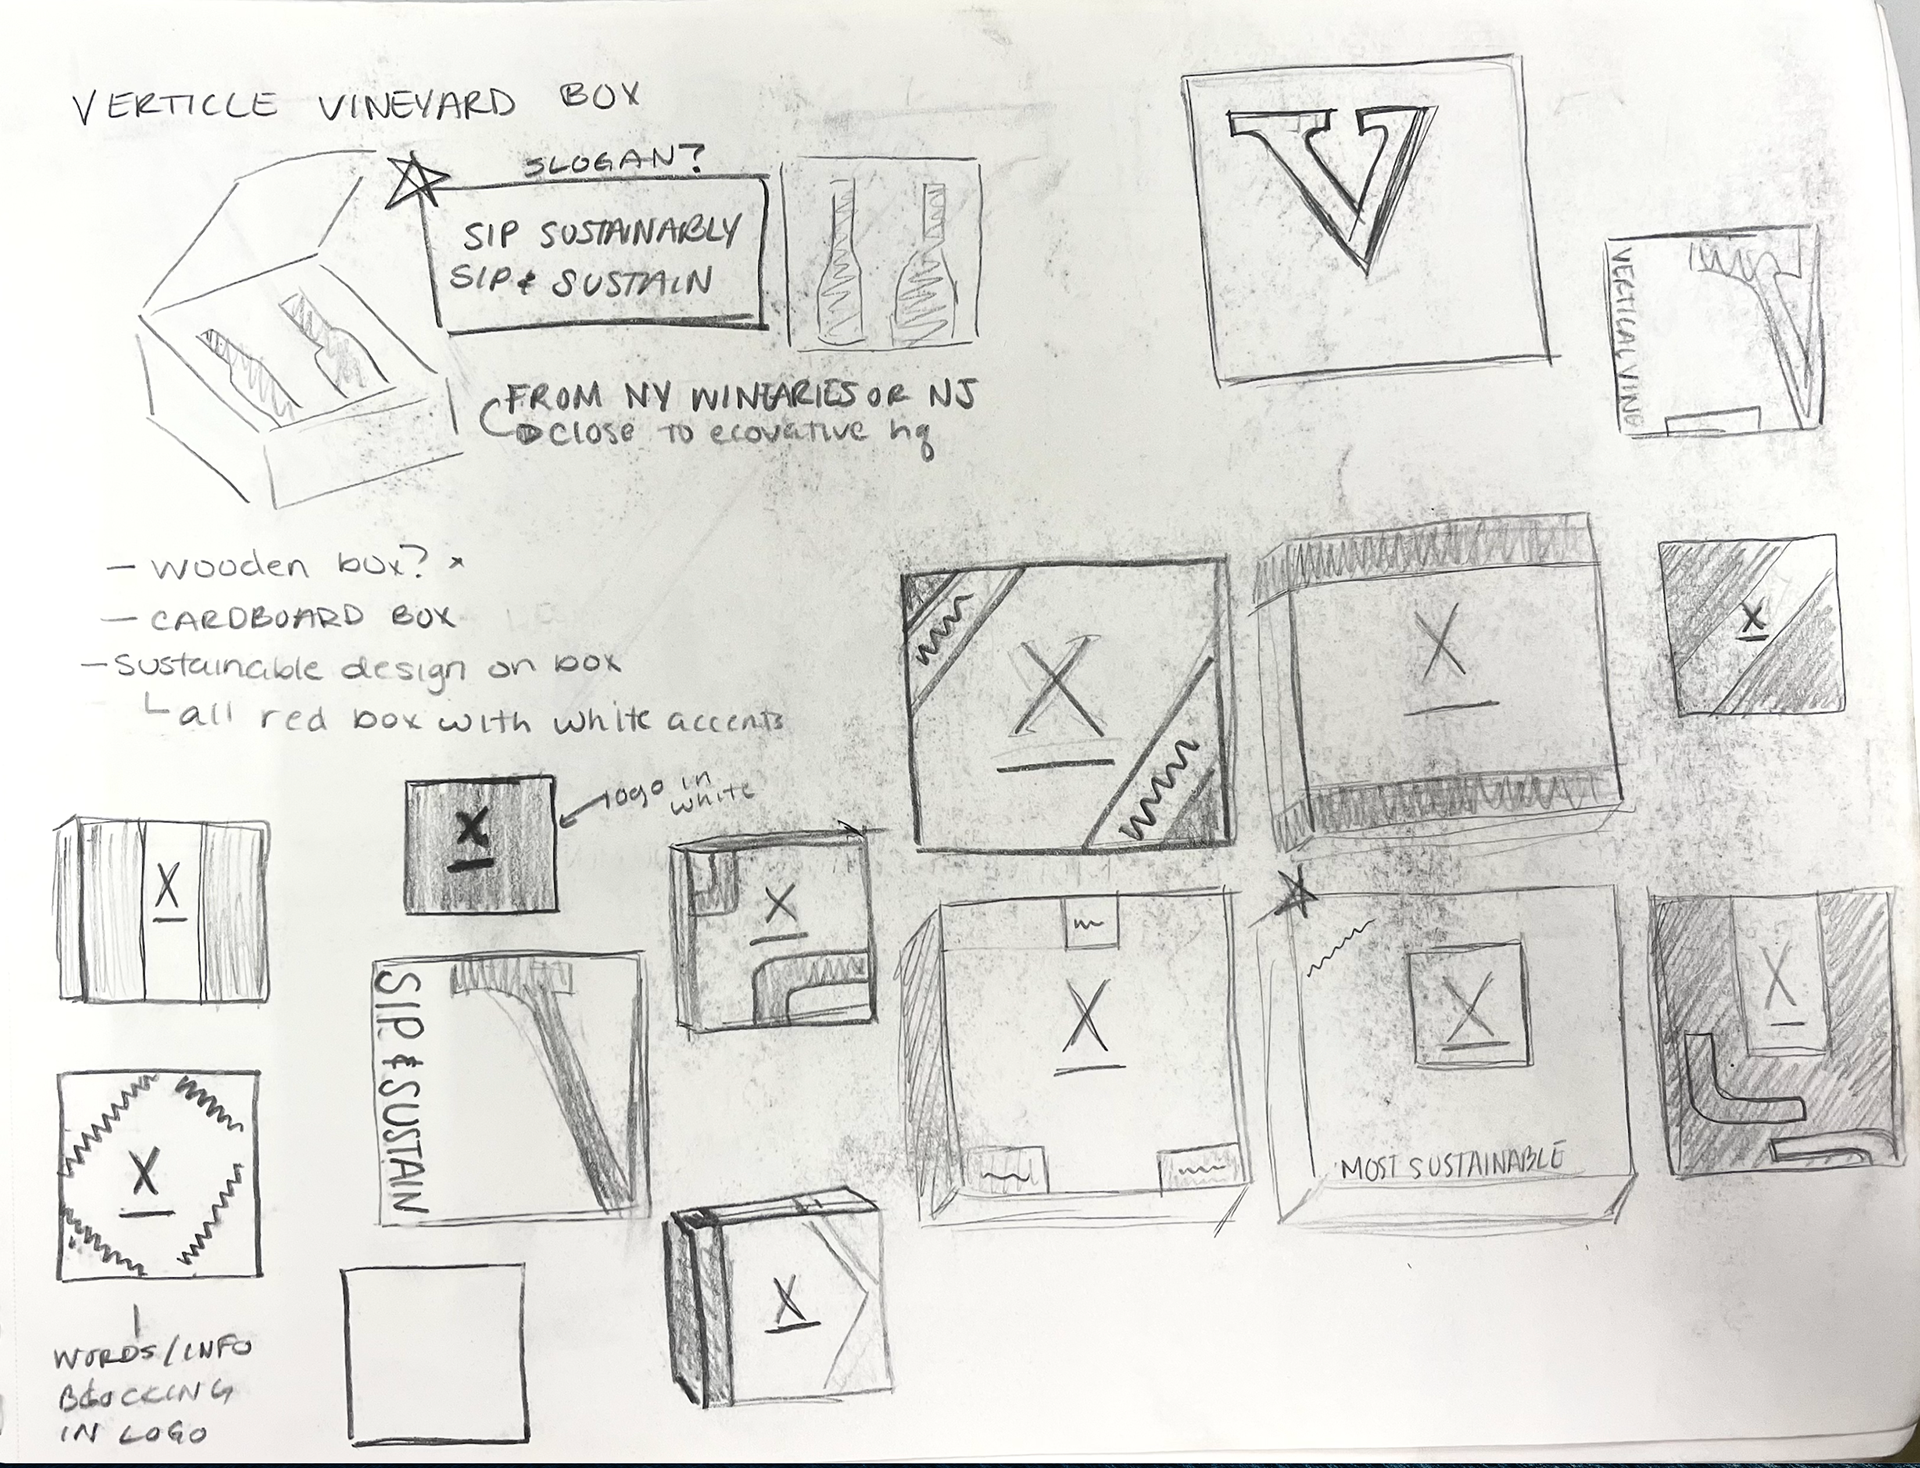 VERTICLE VINEYARD BOX
SLOGAN?
SIP SUSTAINABLY
SIP & SUSTAIN
FROM NY WINEARIES OR NJ
close to ecovative hq
V
VERTICAL VINE
- wooden box? x
- CARDBOARD BOX
- sustainable design on box
all red box with white accents
logo in
white
X
X
X
X
X
X
SIP & SUSTAIN
X
X
X
MOST SUSTAINABLE
X
X
X
WORDS/INFO
BLOCKING
IN LOGO